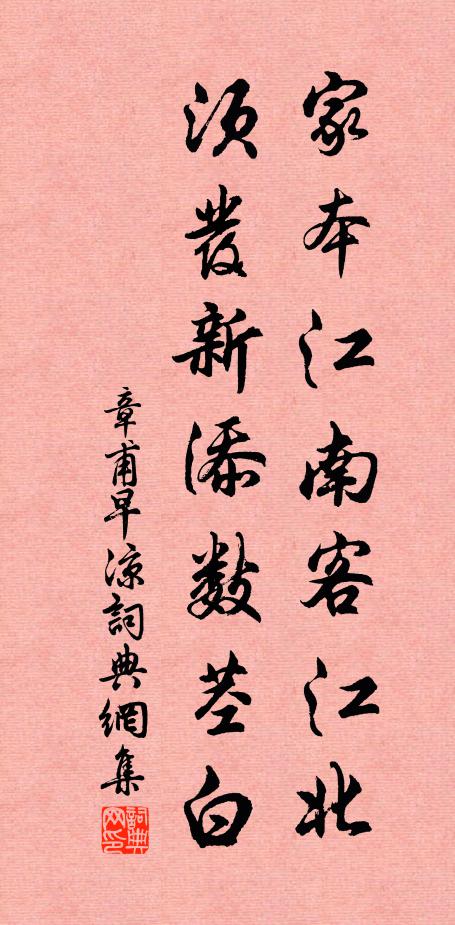 家本江南客江北
须發新添数茎白
章甫早涼詞典網集
詞典
网印